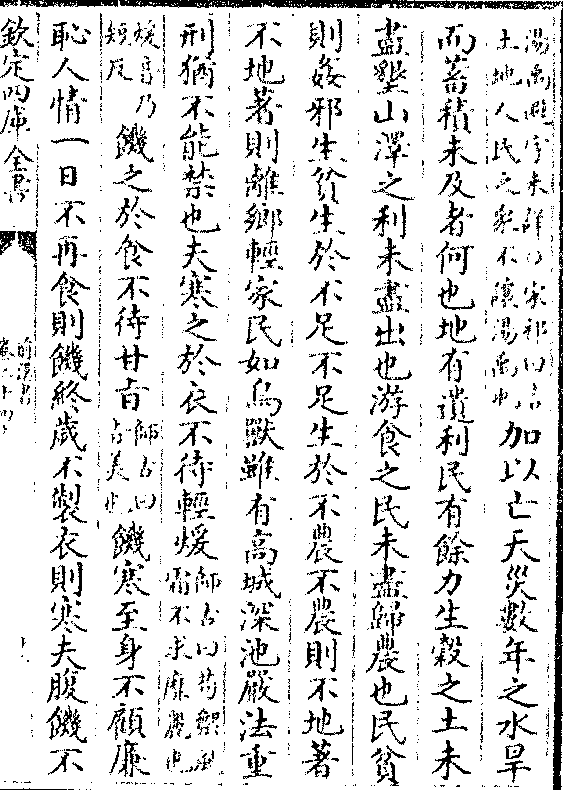 湯禹避字未詳○宋祁曰言
土地人民之衆不讓湯禹也加以亡天災數年之水旱
而蓄積未及者何也地有遺利民有餘力生榖之土未
盡墾山澤之利未盡出也游食之民未盡歸農也民貧
則姦邪生貧生於不足不足生於不農不農則不地著
不地著則離鄉輕家民如鳥獸雖有高城深池嚴法重
刑猶不能禁也夫寒之於衣不待輕煖師古曰苟禦風
霜不求靡麗也
煖音乃
短反饑之於食不待甘㫖師古曰
㫖美也饑寒至身不顧廉
恥人情一日不再食則饑終歲不製衣則寒夫腹饑不
欽定四庫全書
前漢書
卷二十四上